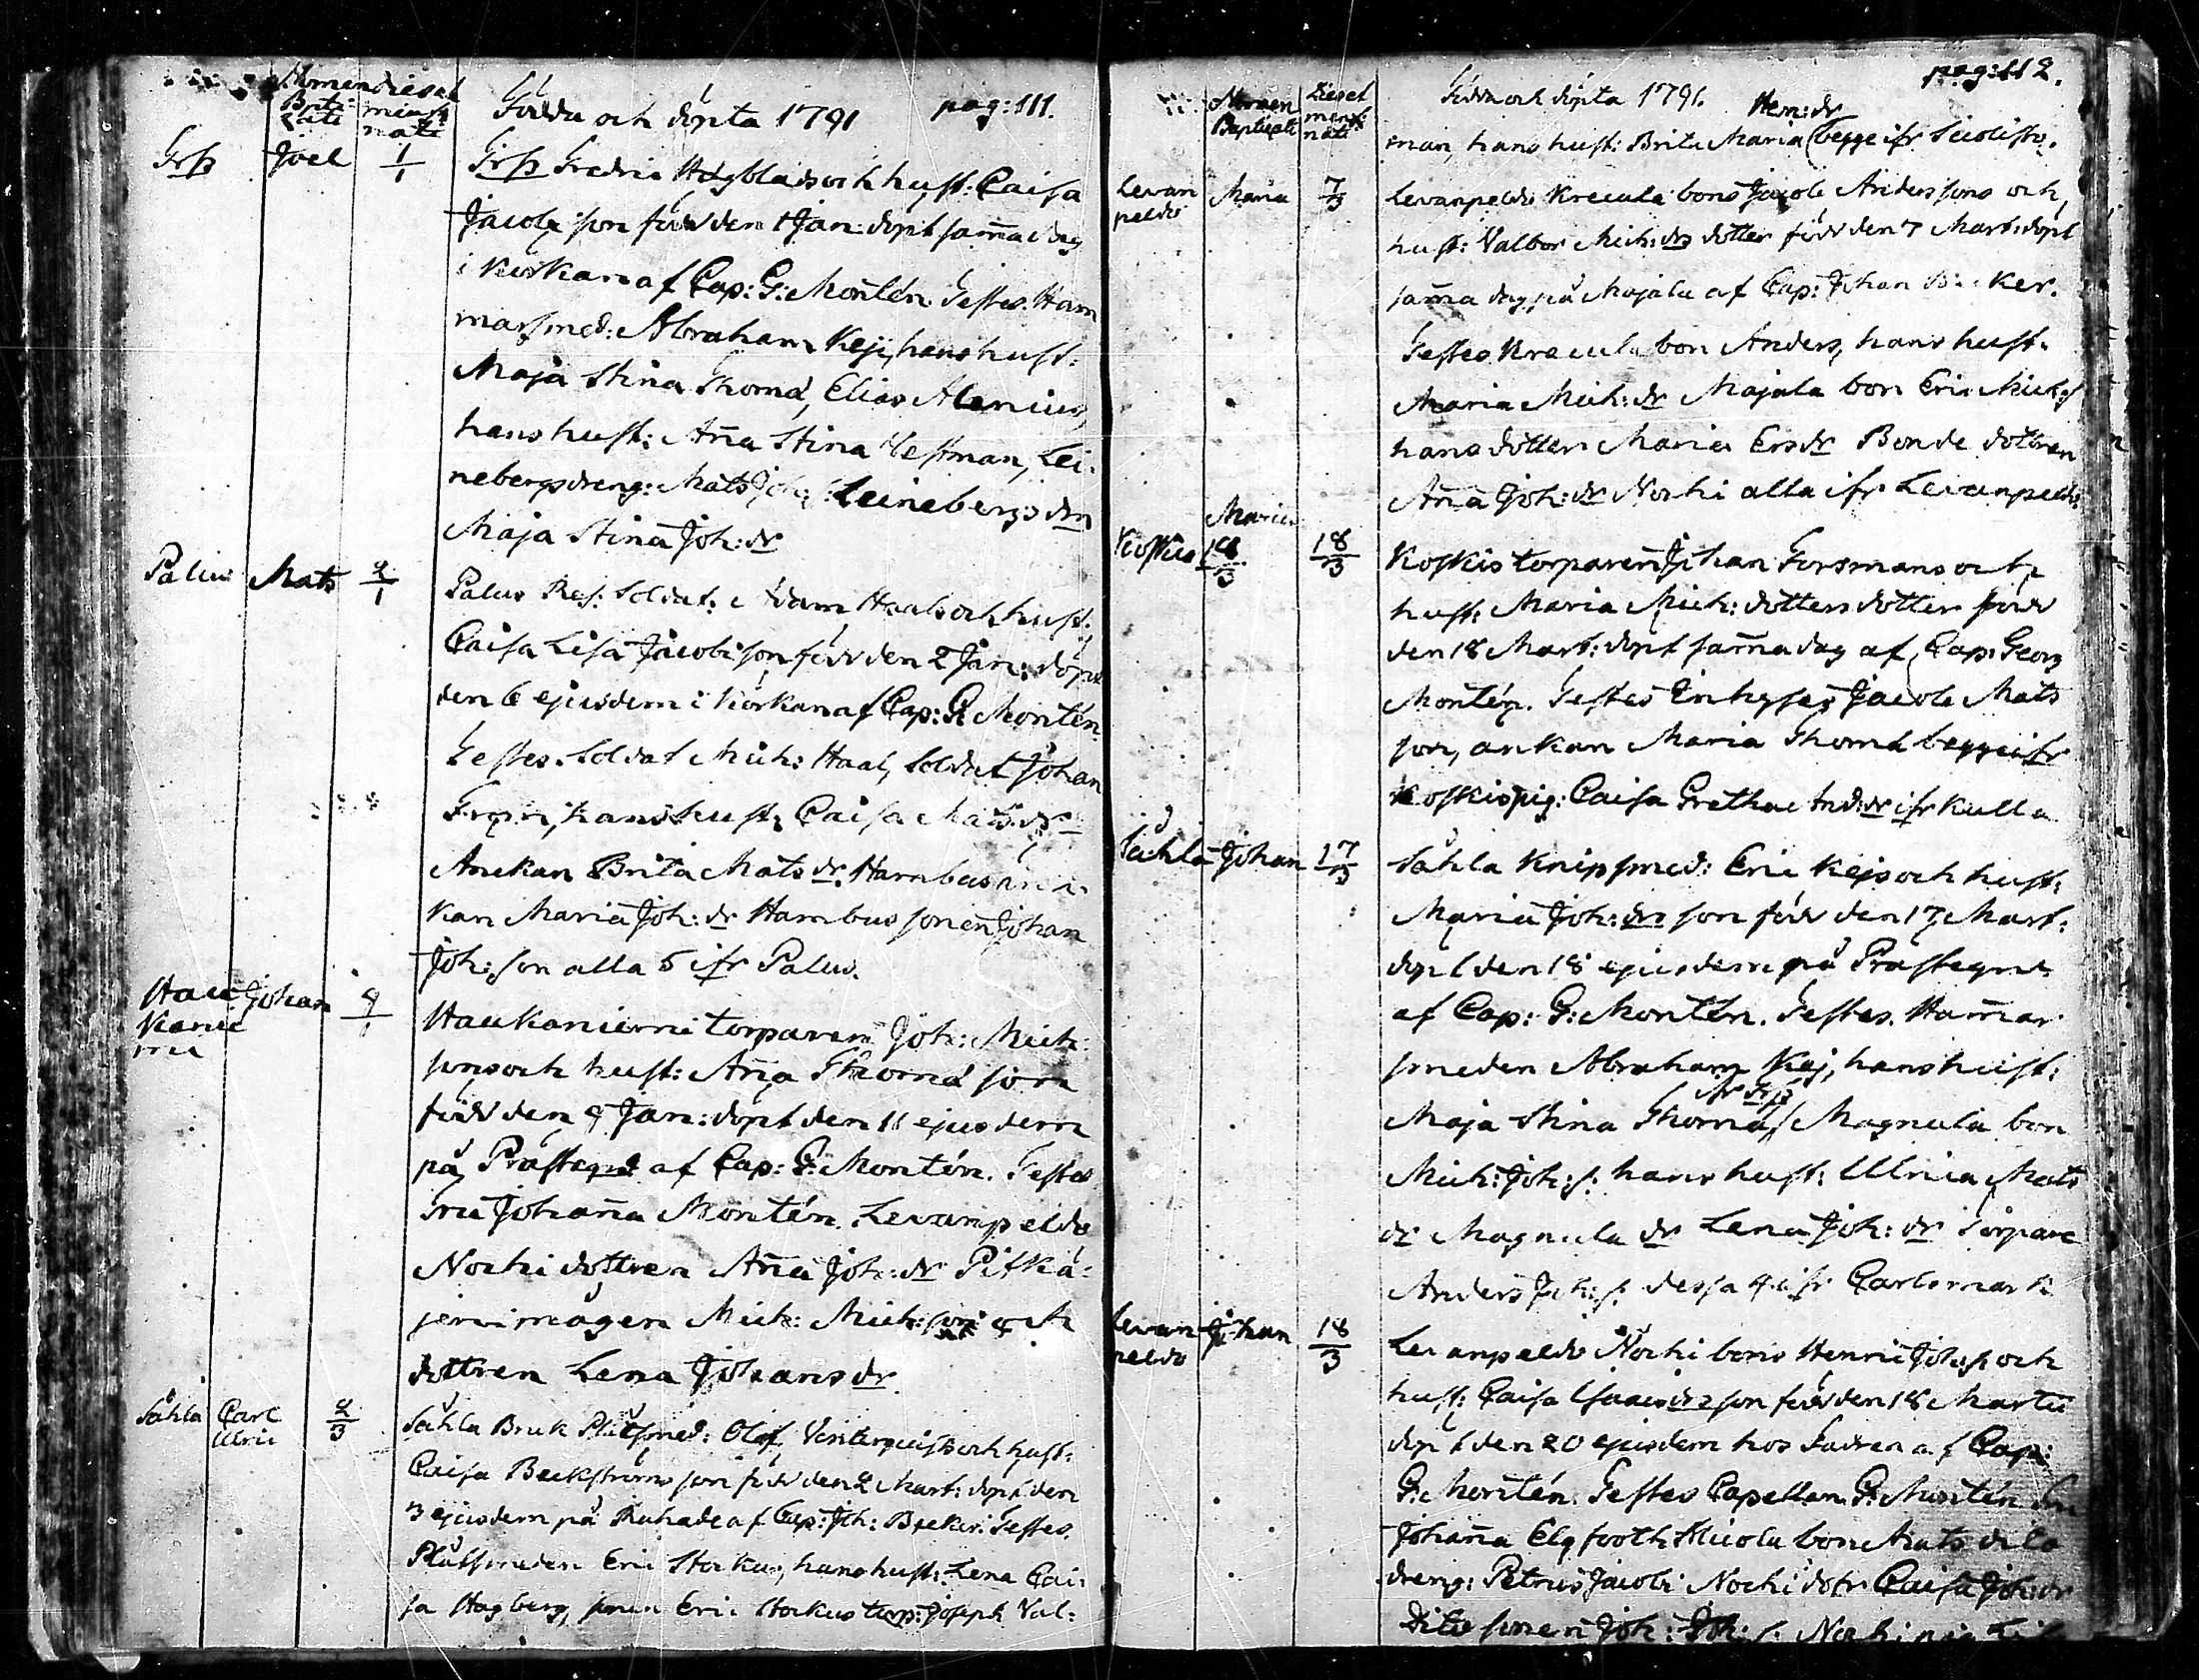 Nomen dies et
Bpti mens:
zati nati
Födde och döpta 1791 pag: 111.
Grsb Joel 1/1 Grsb Fredric Högblads och hust: Caisa
Jacobi son född den 1 Jan: döpt samma dag
i Kÿrkan af Cap: G: Montén. Testes. Ham
marsmed: Abraham Keij, hans hust:
Maja Stina Thomæ, Elias Alenius,
hans hust: Anna Stina Vestman, Lei-
nebergs dreng: Mats Joh: s: Leinebergs drn
Maja Stina Joh: dr
Palus Mats 2/1 Palus Res. Soldat: Adam Haals och hust:
Caisa Lisa Jacobi son född den 2 Jan: döpt
den 6 ejusdem i Kÿrkan af Cap: G: Montén.
Testes. Soldat Mich: Haal, Soldat Johan
hans hust: Caisa Mats dr
Änkan Brita Mats dr. Hambus än-
kan Maria Joh: dr Hambus sonen Johan
Joh: son alla 5 ifr Palus.
Hau Johan 9/1 Haukaniemi torparen Joh: Mich:
Kanie sons och hust: Anna Thomæ son
mi född den 9 Jan: döpt den 11 ejusdem
på Prästegrd af Cap: G: Montén. Testes
Fru Johanna Montén. Levanpeldo
Nochi dottren Anna Joh: dr Pitkä-
jervi mågen Mich: Mich: son och
dottren Lena Johans dr.
Såhla Carl 2/3 Såhla Bruk Plåtsmed: Olof Vinterquists och hust:
Ulric Caisa Beckströms son född den 2 Mart: döpt den
3 ejusdem på Ruhade af Cap: Joh: Becker. Testes.
Plåtsmeden Eric Storkus, hans hust: Lena Cai-
sa Hagberg, sonen Eric Storkus torp: Joseph Val-
pag: 112.
Nomen Dies et
Baptizati mens:
nati
Födde och döpta 1791. Hem: dr
man, hans hust: Brita Maria (begge ifr
Levan Maria 7/3 Levanpeldo Krecula bons Jacob Anderssons och
peldo hust: Valbor Mich: drs dotter född den 7 Mart: döpt
samma dag på Majala af Cap: Johan Becker.
Testes Krecula bon Anders, hans hust:
Maria Mich: dr Majala bon Eric Mich: s
hans dotter Maria Ers dr Bonde dottren
Anna Joh: dr Nochi alla ifr Levanpeldo
Maria
Koskis 18/3 18/3 Koskis torparen Johan Forsmans och
hust: Maria Mich: dotters dotter född
den 18 Mart: döpt samma dag af Cap: Georg
Montén. Testes Inhyses Jacob Mats
son, änkan Maria Thomæ begge ifr
Koskis pig: Caisa Gretha And: dr ifr Kulla
Såhla Johan 17/3 Såhla Knipsmed: Eric Kejs och hust:
Maria Joh: drs son född den 17 Mart:
döpt den 18 ejusdem på Prästegrd
af Cap: G: Montén. Testes. Hammar
smeden Abraham Kej, hans hust:
ifr Grsb
Maja Stina Thomæ/ Magnula bon
Mich: Joh: s: hans hust: Ulrica Mats
dr Magnula dr Lena Joh: dr torpare
Anders Joh: s: dessa 4 ifr Carlsmark
Levan Johan 18/3 Levanpeldo Nochi bons Henric Joh: s och
peldo hust: Caisa Isaacs drs son född den 18 Martii
döpt den 20 ejusdem hos Fadren af Cap:
G: Montén. Testes Capellan G: Montén Fru
Johanna Elgfooth bon Mats dito
dreng: Petrus Jacobi Nochi dotr Caisa Joh: dr
Dito sonen Joh: Joh: s: Nochi